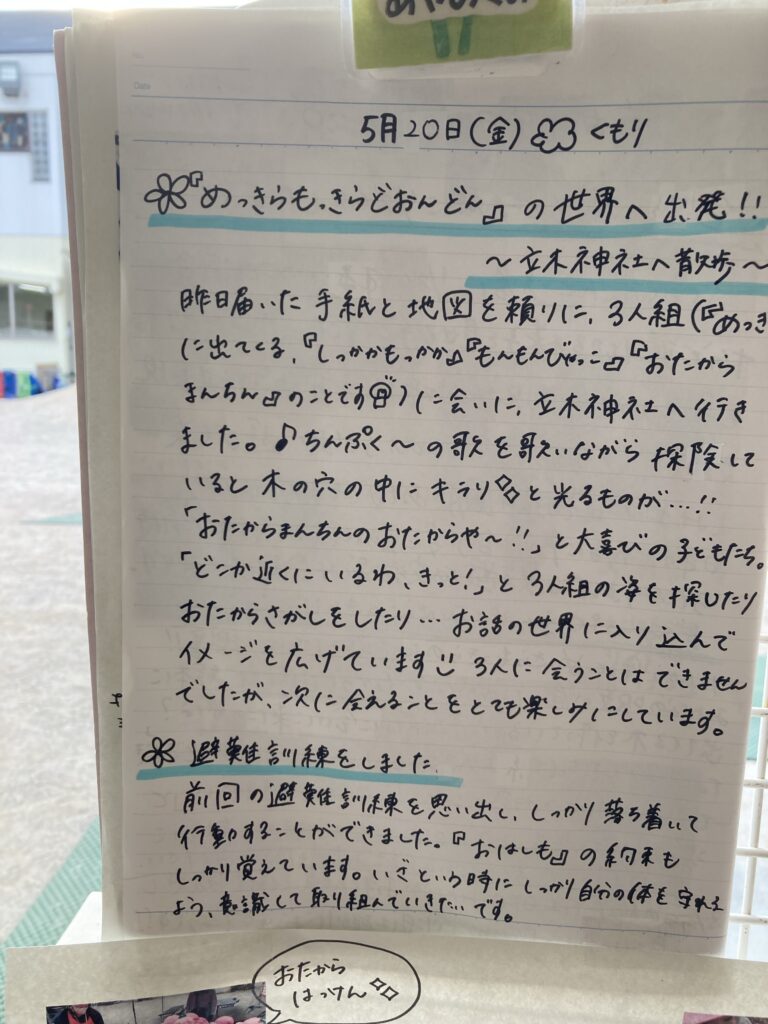 Date
5月20日(金) くもり
『めっきらもっきらどおんどん』の世界へ出発!!
～立木神社へ散歩～
昨日届いた手紙と地図を頼りに、3人組(『めっき
に出てくる、『しっかかもっかか』『もんもんびゃっこ』『おたから
まんちん』のことです)に会いに、立木神社へ行き
ました。♪ちんぷく～の歌を歌いながら探険して
いると木の穴の中にキラリと光るものが…!!
「おたからまんちんのおたからや～!!」と大喜びの子どもたち。
「どこか近くにいるわ、きっと!」と3人組の姿を探したり
おたからさがしをしたり…お話の世界に入り込んで
イメージを広げています 3人に会うことはできません
でしたが、次に会えることをとても楽しみにしています。
避難訓練をしました.
前回の避難訓練を思い出し、しっかり落ち着いて
行動することができました。『おはしも』の約束も
しっかり覚えています。いざという時にしっかり自分の体を守れる
よう、意識して取り組んでいきたいです。
おたから
はっけん